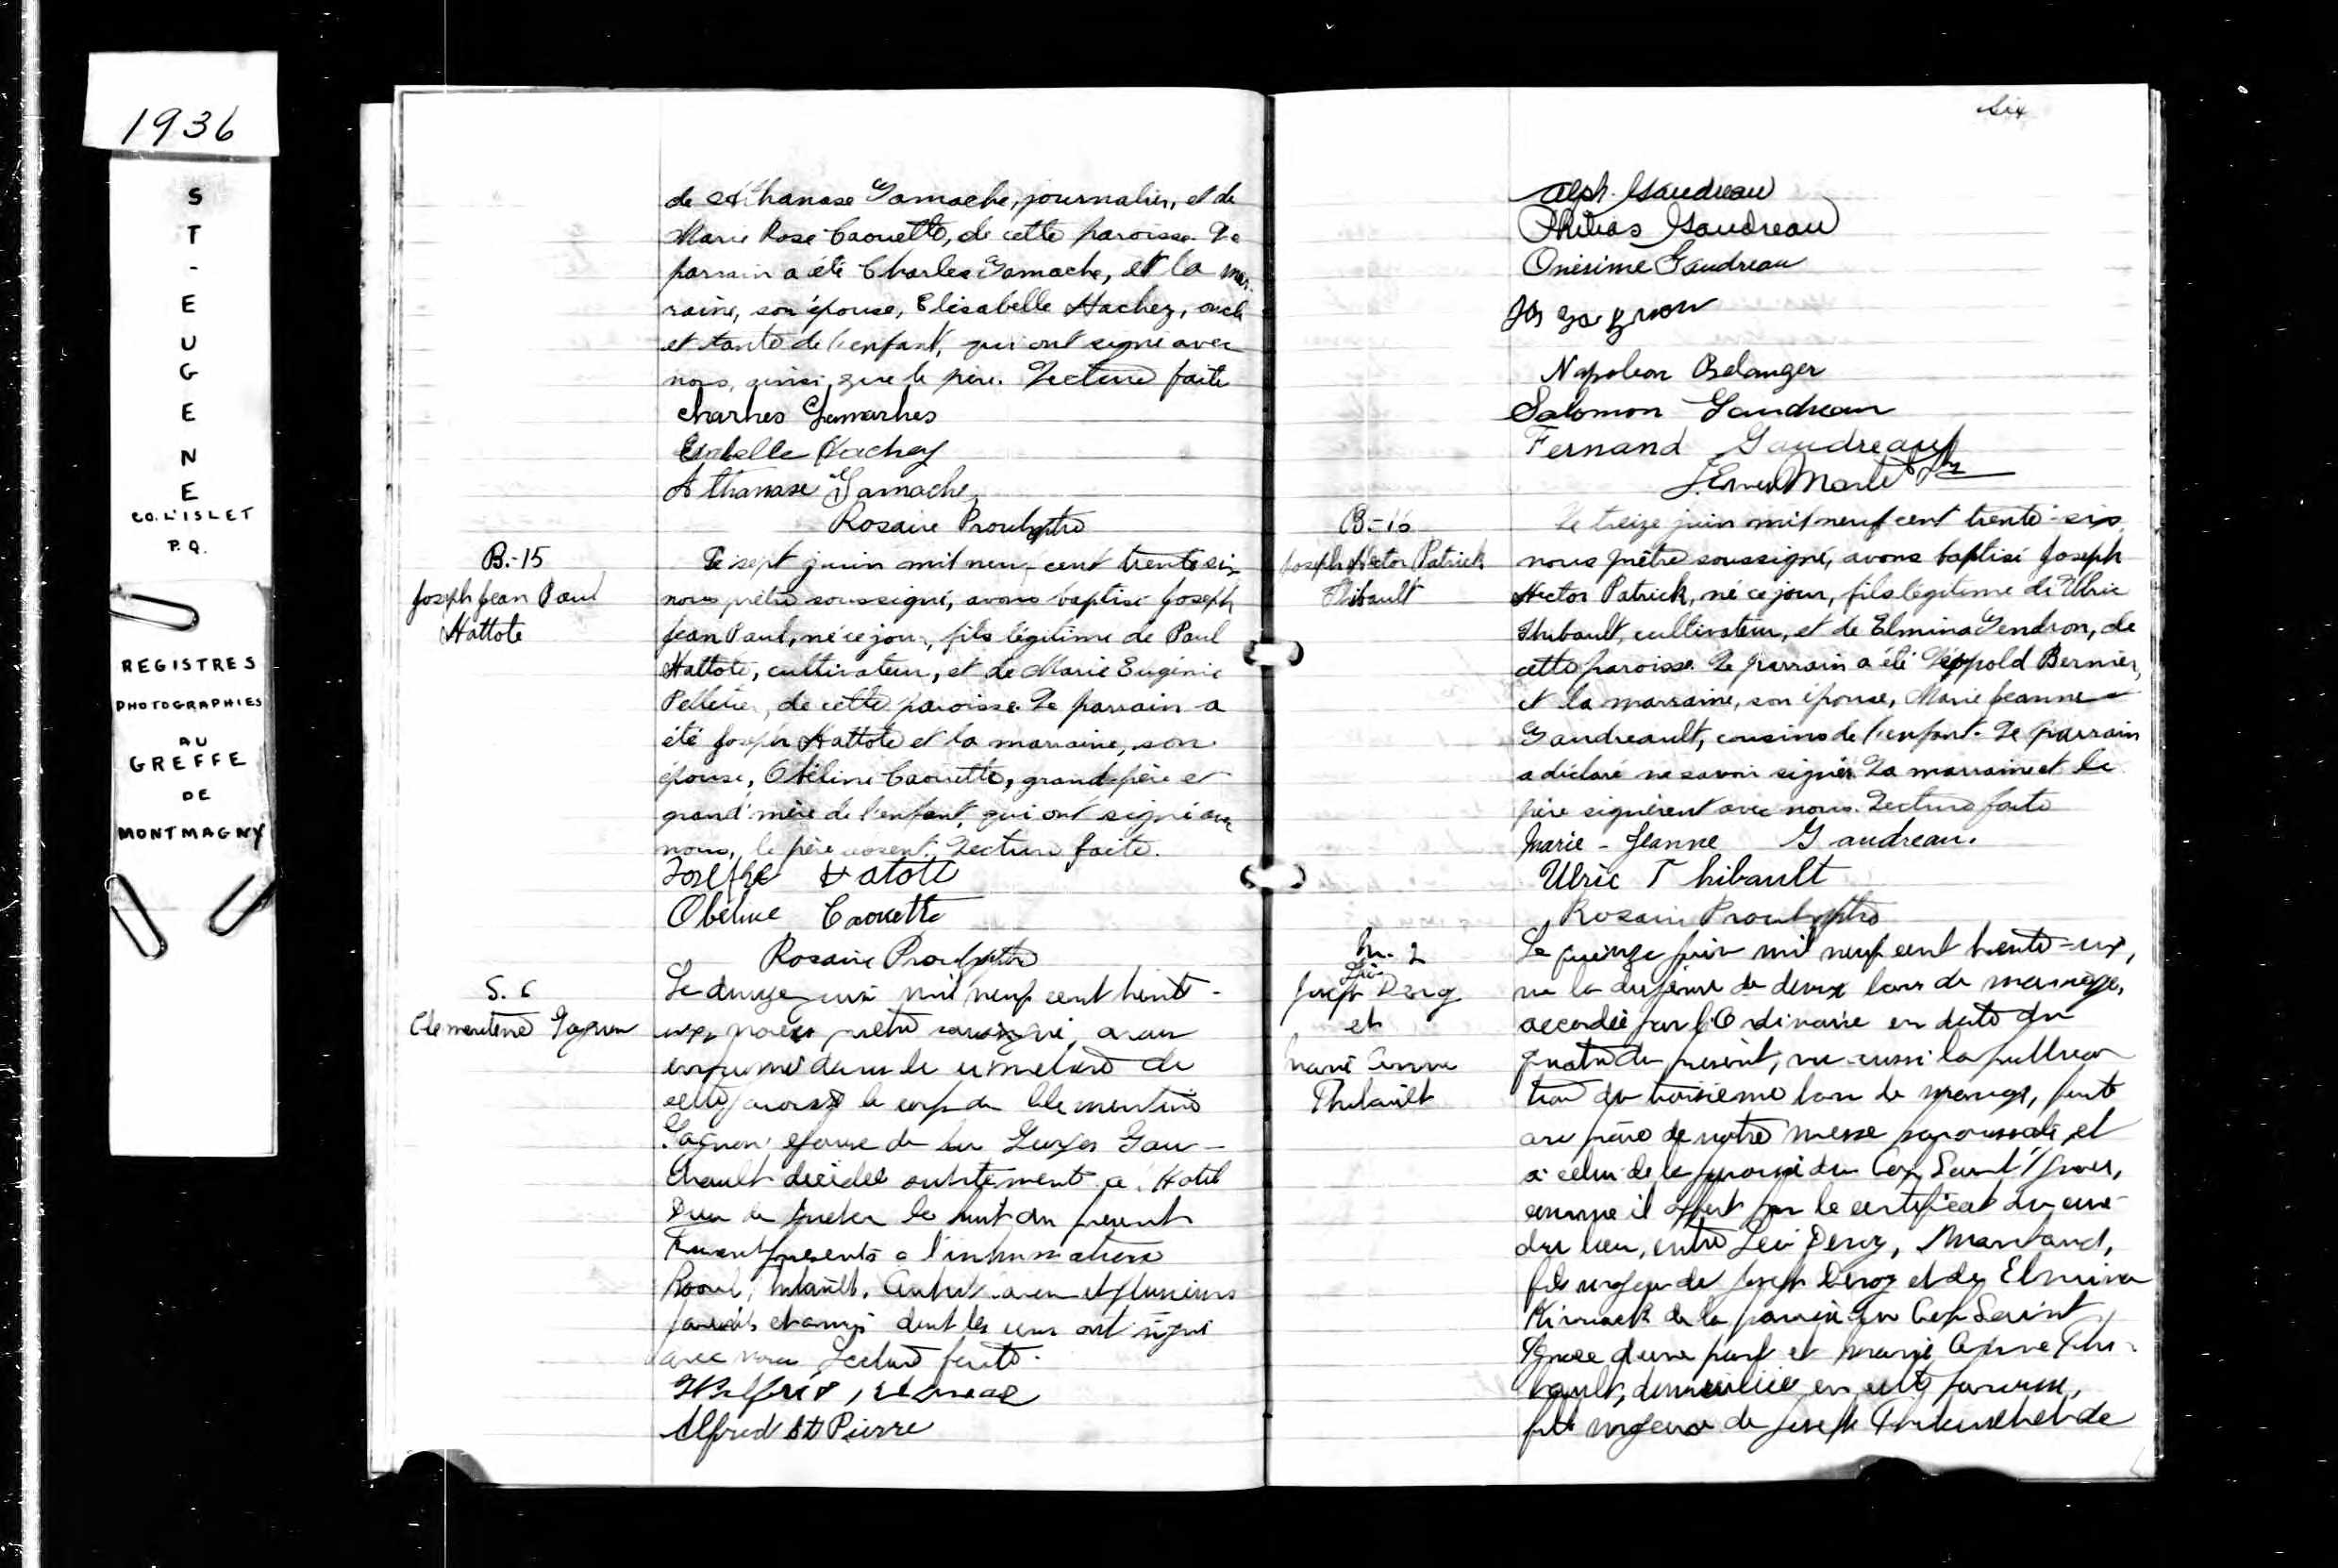 1936
ST-EUGENE
CO. L'ISLET
P.Q.
REGISTRES
PHOTOGRAPHIES
AU
GREFFE
DE
MONTMAGNY
de Athanase Gamache, journalier, et de
Marie Rose Caouette, de cette paroisse. Le
parrain a été Charles Gamache, et la mar-
raine, son épouse, Elisabelle Hachez, oncle
et tante de l'enfant, qui ont signé avec
nous, ainsi que le père. Lecture faite
Charles
Hachey
Athanase Gamache
Rosaire Proulx ptre
B.-15
Joseph Jean Paul
Hattote
Le sept juin mil neuf cent trente six
nous prêtre soussigné, avons baptisé Joseph
Jean Paul, né ce jour, fils légitime de Paul
Hattote, cultivateur, et de Marie Eugénie
Pelletier, de cette paroisse. Le parrain a
été Joseph Hattote et la marraine, son
épouse, Obéline Caouette, grand-père et
grand'mère de l'enfant, qui ont signé avec
nous, le père absent. Lecture faite.
Joseph Hatote
Obeline Caouette
Rosaire Proulx ptre
S. 6
Clementine Gagnon
Le douze juin mil neuf cent trente-
six, nous prêtre soussigné, avons
inhumé dans le cimetière de
cette paroisse le corps de Clementine
Gagnon épouse de feu
décédée subitement à Hotel
Dieu de Quebec le huit du présent
Furent présents à l'inhumation
et plusieurs
parents et amis dont les uns ont signé
avec nous Lecture faite.
Alfred St Pierre
six
Alph. Gaudreau
Philias Gaudreau
Onésime Gaudreau
Jos Gagnon
Napoleon Belanger
Salomon Gaudreau
Fernand Gaudreau
B.-16
Joseph Hector Patrick
Thibault
Le treize juin mil neuf cent trente-six
nous prêtre soussigné, avons baptisé Joseph
Hector Patrick, né ce jour, fils légitime de Ulric
Thibault, cultivateur, et de Elmina Gendron, de
cette paroisse. Le parrain a été Léopold Bernier,
et la marraine, son épouse, Marie Jeanne
Gaudreault, cousins de l'enfant. Le parrain
a déclaré ne savoir signer. La marraine et le
père signèrent avec nous. Lecture faite
Marie-Jeanne Gaudreau.
Ulric Thibault
Rosaire Proulx ptre
M. 2
Joseph
et
Marie Anne
Thibault
Le quinze juin mil neuf cent trente-six,
vu la dispense de deux bans de mariage,
accordée par l'Ordinaire en date du
quatre du présent, vu aussi la publica
tion du troisième ban de mariage, faite
au prône de notre messe paroissiale et
à celui de la paroisse du Cap Saint Ignace,
comme il appert par le certificat du curé
du lieu, entre
fils majeur de Joseph et de Elmina
de la paroisse du Cap Saint
Ignace d'une part et Marie Anne Thi-
bault, domiciliée en cette paroisse,
fille majeure de Joseph Thibault et de